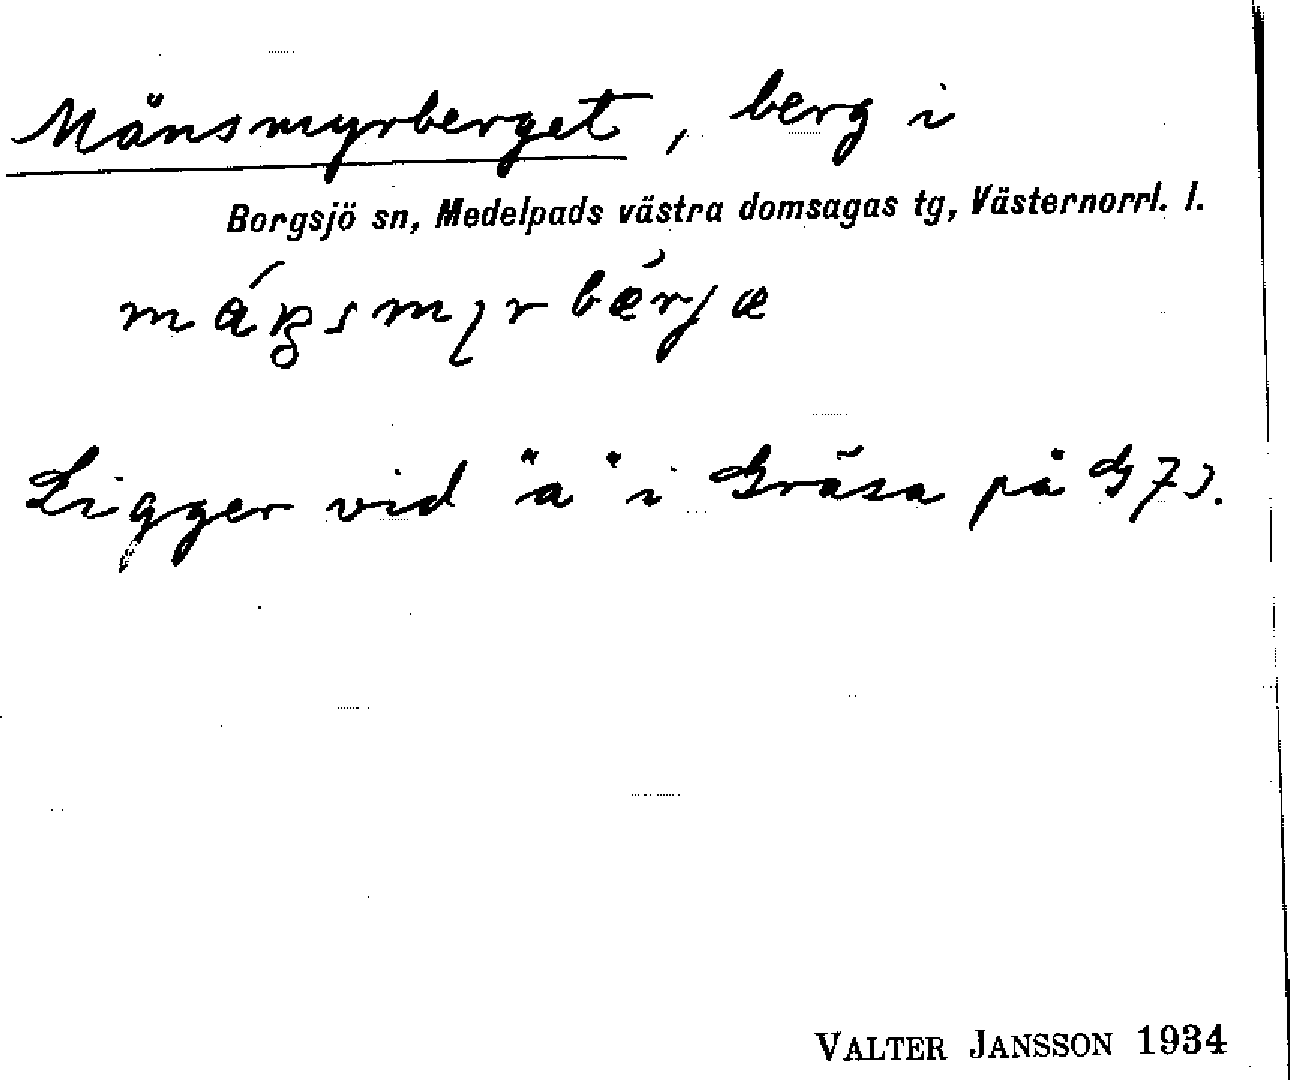 Månsmyrberget, berg i
Borgsjö sn, Medelpads västra domsagas tg, Västernorrl. l.
Ligger vid "a" i Gräsa på G 7).
VALTER JANSSON 1934